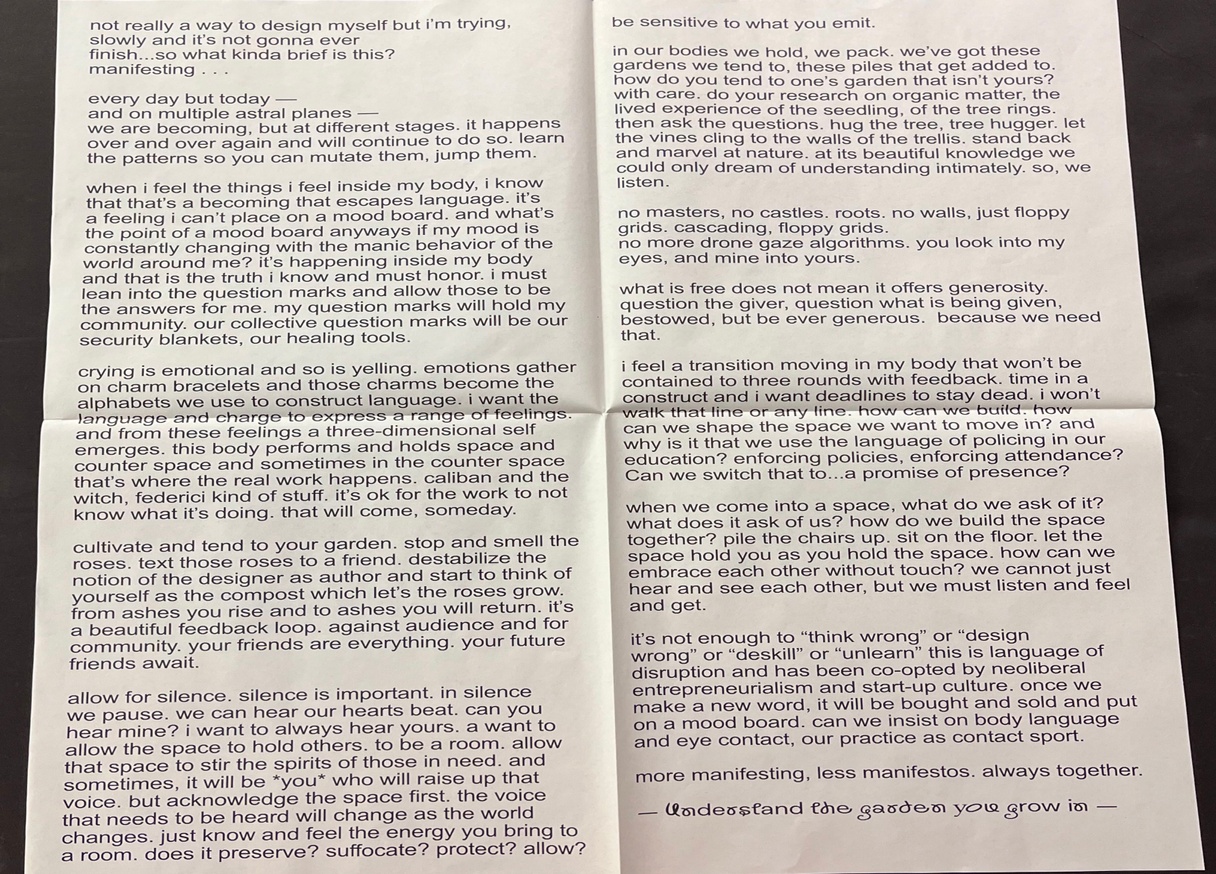 not really a way to design myself but i'm trying,
slowly and it's not gonna ever
finish...so what kinda brief is this?
manifesting . . .
every day but today —
and on multiple astral planes —
we are becoming, but at different stages. it happens
over and over again and will continue to do so. learn
the patterns so you can mutate them, jump them.
when i feel the things i feel inside my body, i know
that that's a becoming that escapes language. it's
a feeling i can't place on a mood board. and what's
the point of a mood board anyways if my mood is
constantly changing with the manic behavior of the
world around me? it's happening inside my body
and that is the truth i know and must honor. i must
lean into the question marks and allow those to be
the answers for me. my question marks will hold my
community. our collective question marks will be our
security blankets, our healing tools.
crying is emotional and so is yelling. emotions gather
on charm bracelets and those charms become the
alphabets we use to construct language. i want the
language and charge to express a range of feelings.
and from these feelings a three-dimensional self
emerges. this body performs and holds space and
counter space and sometimes in the counter space
that's where the real work happens. caliban and the
witch, federici kind of stuff. it's ok for the work to not
know what it's doing. that will come, someday.
cultivate and tend to your garden. stop and smell the
roses. text those roses to a friend. destabilize the
notion of the designer as author and start to think of
yourself as the compost which let's the roses grow.
from ashes you rise and to ashes you will return. it's
a beautiful feedback loop. against audience and for
community. your friends are everything. your future
friends await.
allow for silence. silence is important. in silence
we pause. we can hear our hearts beat. can you
hear mine? i want to always hear yours. a want to
allow the space to hold others. to be a room. allow
that space to stir the spirits of those in need. and
sometimes, it will be *you* who will raise up that
voice. but acknowledge the space first. the voice
that needs to be heard will change as the world
changes. just know and feel the energy you bring to
a room. does it preserve? suffocate? protect? allow?
be sensitive to what you emit.
in our bodies we hold, we pack. we've got these
gardens we tend to, these piles that get added to.
how do you tend to one's garden that isn't yours?
with care. do your research on organic matter, the
lived experience of the seedling, of the tree rings.
then ask the questions. hug the tree, tree hugger. let
the vines cling to the walls of the trellis. stand back
and marvel at nature. at its beautiful knowledge we
could only dream of understanding intimately. so, we
listen.
no masters, no castles. roots. no walls, just floppy
grids. cascading, floppy grids.
no more drone gaze algorithms. you look into my
eyes, and mine into yours.
what is free does not mean it offers generosity.
question the giver, question what is being given,
bestowed, but be ever generous.  because we need
that.
i feel a transition moving in my body that won't be
contained to three rounds with feedback. time in a
construct and i want deadlines to stay dead. i won't
walk that line or any line. how can we build. how
can we shape the space we want to move in? and
why is it that we use the language of policing in our
education? enforcing policies, enforcing attendance?
Can we switch that to...a promise of presence?
when we come into a space, what do we ask of it?
what does it ask of us? how do we build the space
together? pile the chairs up. sit on the floor. let the
space hold you as you hold the space. how can we
embrace each other without touch? we cannot just
hear and see each other, but we must listen and feel
and get.
it's not enough to “think wrong” or “design
wrong” or “deskill” or “unlearn” this is language of
disruption and has been co-opted by neoliberal
entrepreneurialism and start-up culture. once we
make a new word, it will be bought and sold and put
on a mood board. can we insist on body language
and eye contact, our practice as contact sport.
more manifesting, less manifestos. always together.
— Understand the garden you grow in —